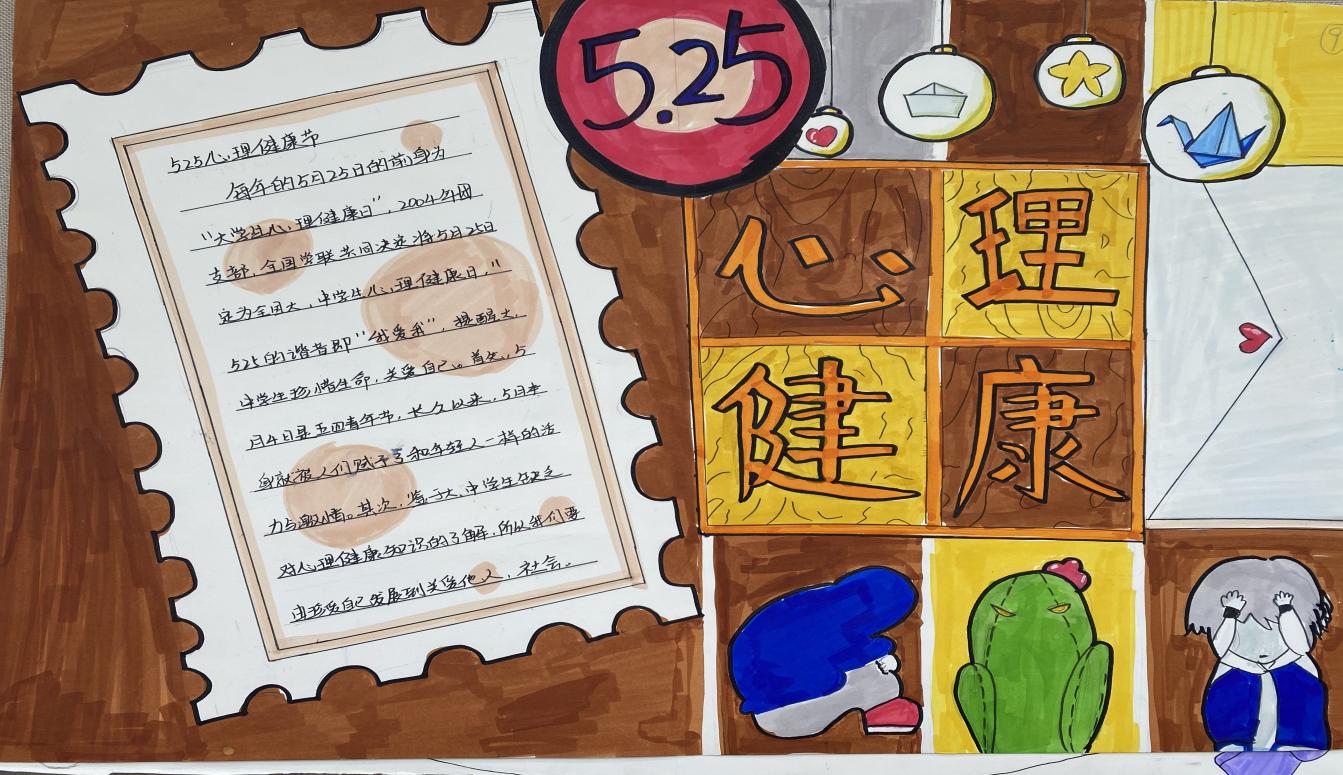 525心理健康节
每年的5月25日的前身为
"大学生心理健康日"，2004年团
支部，全国学联共同决定将5月25日
定为全国大，中学生心理健康日，"
525的谐音即"我爱我"，提醒大，
中学生珍惜生命，关爱自己。首先，5
月4日是五四青年节，长久以来，5月本
身就被人们赋予了和年轻人一样的活
力与激情。其次，鉴于大，中学生缺乏
对心理健康知识的了解，所以我们要
由珍爱自己发展到关爱他人，社会。
5.25
心理
健康
9